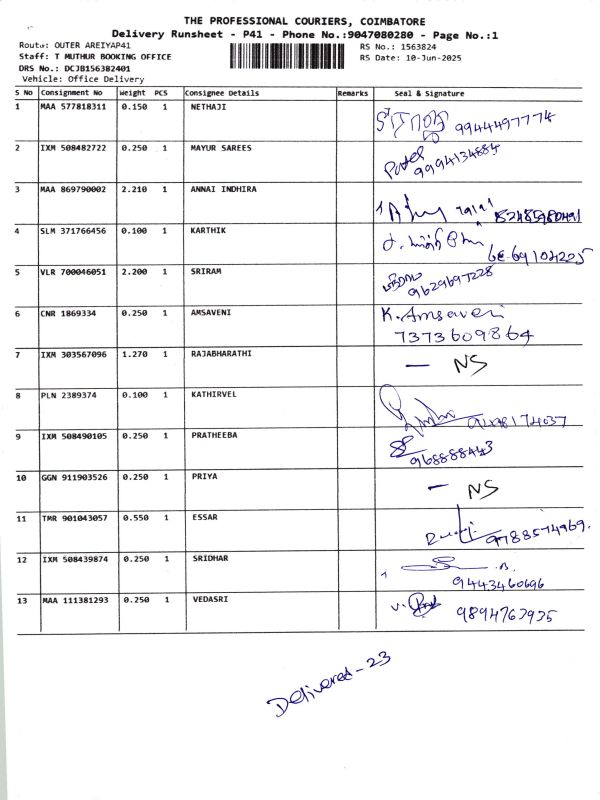 THE PROFESSIONAL COURIERS, COIMBATORE
Delivery Runsheet - P41 - Phone No.:9047080280 - Page No.:1
Route: OUTER AREIYAP41 RS No.: 1563824
Staff: T MUTHUR BOOKING OFFICE RS Date: 10-Jun-2025
DRS No.: DCJB156382401
Vehicle: Office Delivery
S No Consignment No Weight PCS Consignee Details Remarks Seal & Signature
1 MAA 577818311 0.150 1 NETHAJI 9944497774
2 IXM 508482722 0.250 1 MAYUR SAREES Patel 9994134884
3 MAA 869790002 2.210 1 ANNAI INDHIRA
4 SLM 371766456 0.100 1 KARTHIK
5 VLR 700046051 2.200 1 SRIRAM 9629697228
6 CNR 1869334 0.250 1 AMSAVENI K. Amsaveni
7373609864
7 IXM 303567096 1.270 1 RAJABHARATHI — NS
8 PLN 2389374 0.100 1 KATHIRVEL
9 IXM 508490105 0.250 1 PRATHEEBA
10 GGN 911903526 0.250 1 PRIYA — NS
11 TMR 901043057 0.550 1 ESSAR 9788574969.
12 IXM 508439874 0.250 1 SRIDHAR
9443460696
13 MAA 111381293 0.250 1 VEDASRI 9894763935
Delivered - 23